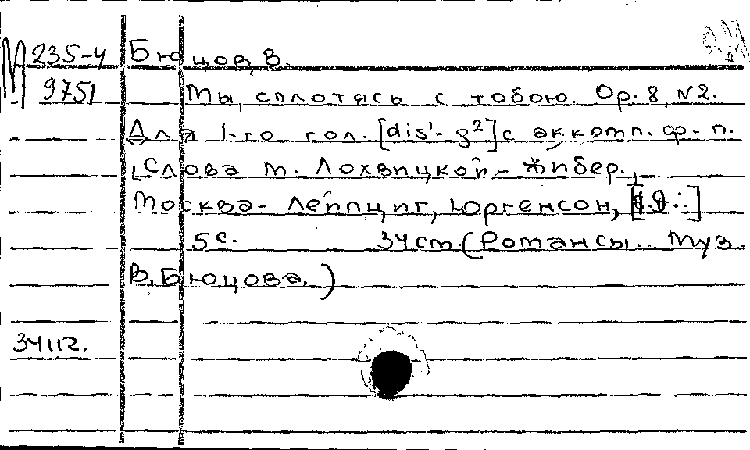 М 235-4 Бюцов, В.
9751 Мы, сплотясь с тобою. Ор. 8, N2.
Для 1-го гол. [dis'- g²] с аккомп. ф.-п.
Слова М. Лохвицкой - Жибер.,
Москва - Лейпциг, Юргенсон,
5 с. 34 см. (Романсы.. Муз.
В. Бюцова.)
34112.